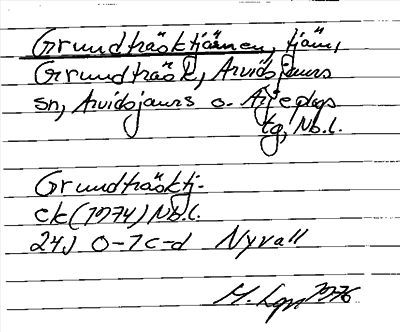 Grundträsktjärnen, tjärn,
Grundträsk, Arvidsjaurs
sn, Arvidsjaurs o. Arjeplogs
tg, Nb.l.
Grundträsktj.
ek (1974) Nb.l.
24J 0-7c-d Nyvall
M. 1976